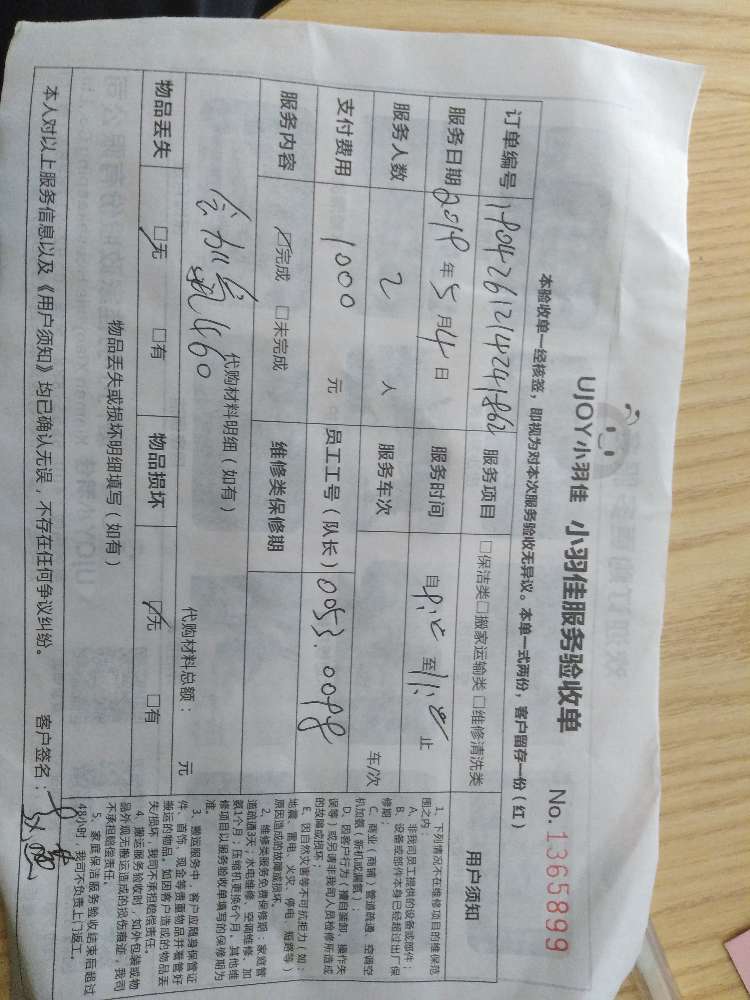 UJOY小羽佳 小羽佳服务验收单 No.1365899
本验收单一经核签，即视为对本次服务验收无异议。本单一式两份，客户留存一份（红）
订单编号 服务项目 □保洁类□搬家运输类□维修清洗类
服务日期 年5月4日 服务时间 自 至 止
服务人数 2 人 服务车次 车/次
支付费用 1000 元 员工工号（队长） 0053.0098
服务内容 ☑完成 □未完成 维修类保修期
代购材料明细（如有）
1460
代购材料总额： 元
物品丢失 ☑无 □有 物品损坏 ☑无 □有
物品丢失或损坏明细填写（如有）
本人对以上服务信息以及《用户须知》均已确认无误，不存在任何争议纠纷。 客户签名：
用户须知
1、下列情况不在维修项目的维保范
围之内：
A、非我司员工提供的设备或部件；
B、设备或部件本身已经超过出厂保
修期；
C、商业（商铺）管道疏通、空调空
机加氨（新机或漏氨）；
D、因客户行为（擅自装卸、操作失
误等）或另请非我司人员检修所造成
的故障或损坏；
E、因自然灾害等不可抗拒力（如：
地震、雷电、火灾、停电、短路等）
原因造成的故障或损坏。
2、维修类服务免费保修期：家庭管
道疏通3天；水电维修、空调维修、加
氨1个月；压缩机更换6个月，其他维
修项目以服务验收单填写的保修期为
准。
3、搬运服务中，客户应随身保管证
件、首饰、现金等贵重物品并看管好
搬运的物品，如因客户造成的物品丢
失/损坏，我司不承担赔偿责任。
4、搬运服务验收时，如外包装或物
品外观无搬运造成的损伤痕迹，我司
不承担赔偿责任。
5、家庭保洁服务验收结束后超过
48小时，我司不负责上门返工。